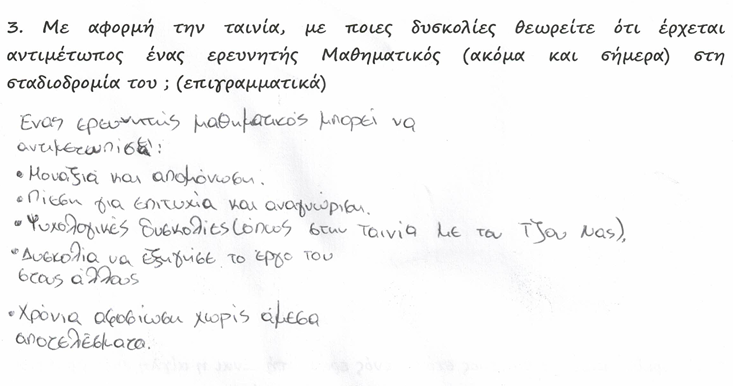 3. Με αφορμή την ταινία, με ποιες δυσκολίες θεωρείτε ότι έρχεται
αντιμέτωπος ένας ερευνητής Μαθηματικός (ακόμα και σήμερα) στη
σταδιοδρομία του ; (επιγραμματικά)
Ένας ερευνητής μαθηματικός μπορεί να
αντιμετωπίσει:
• Μοναξιά και απομόνωση.
• Πίεση για επιτυχία και αναγνώριση.
• Ψυχολογικές δυσκολίες (όπως στην ταινία με τον Τζον Νας),
• Δυσκολία να εξηγήσε το έργο του
στους άλλους
• Χρόνια αφοσίωση χωρίς άμεσα
αποτελέσματα.